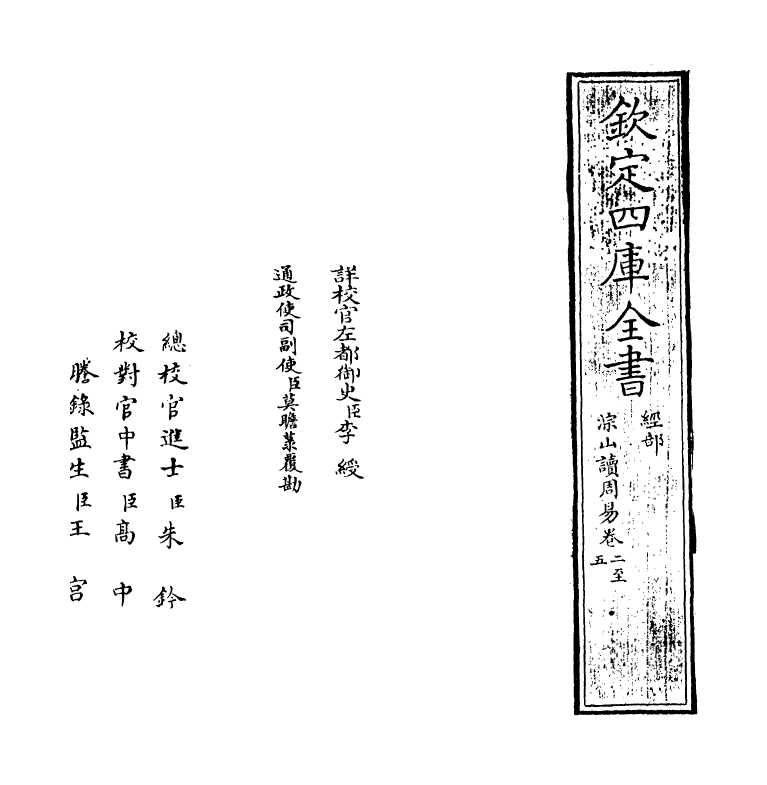 欽定四庫全書
經部
淙山讀周易卷二至五
詳校官左都御史臣李綬
通政使司副使臣莫瞻菉覆勘
總校官進士臣朱鈐
校對官中書臣高中
謄錄監生臣王宫